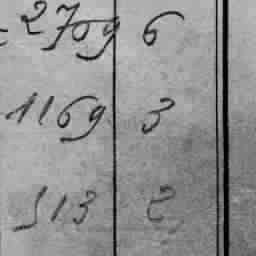 2709 6
1169 3
513 2